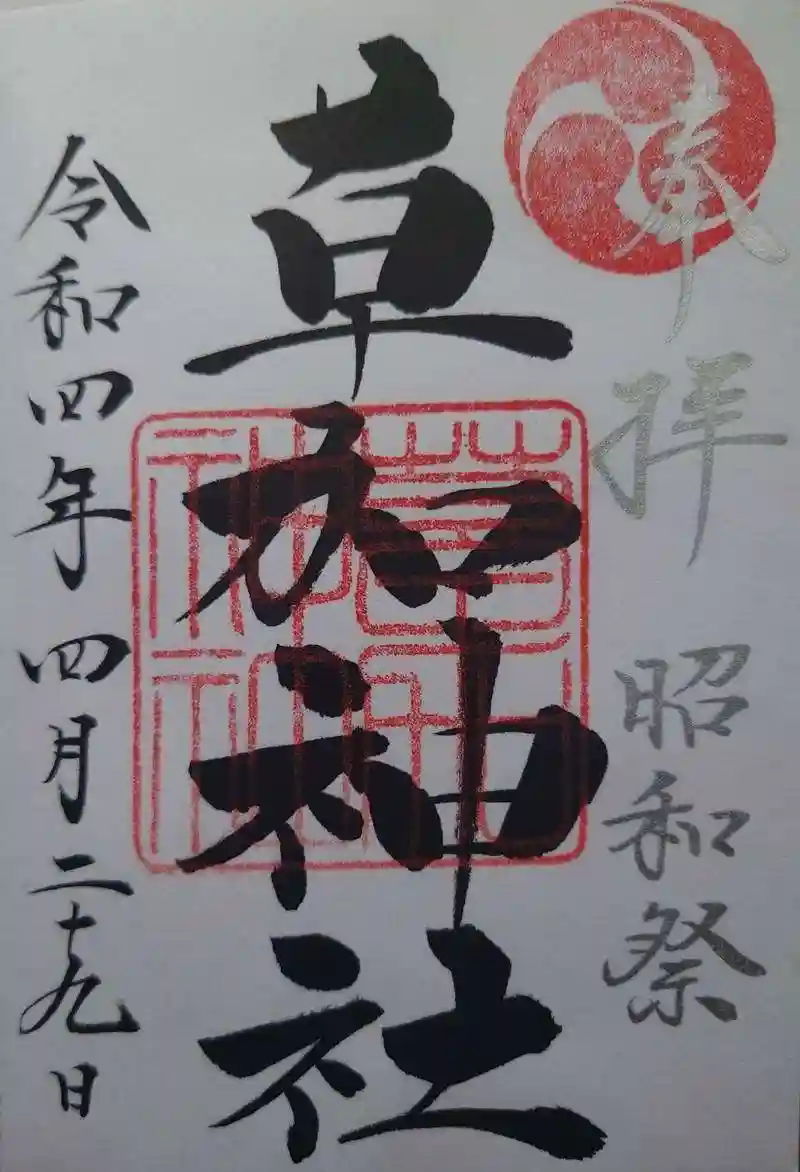 奉拝 昭和祭
草加神社
草加神社
令和四年四月二十九日